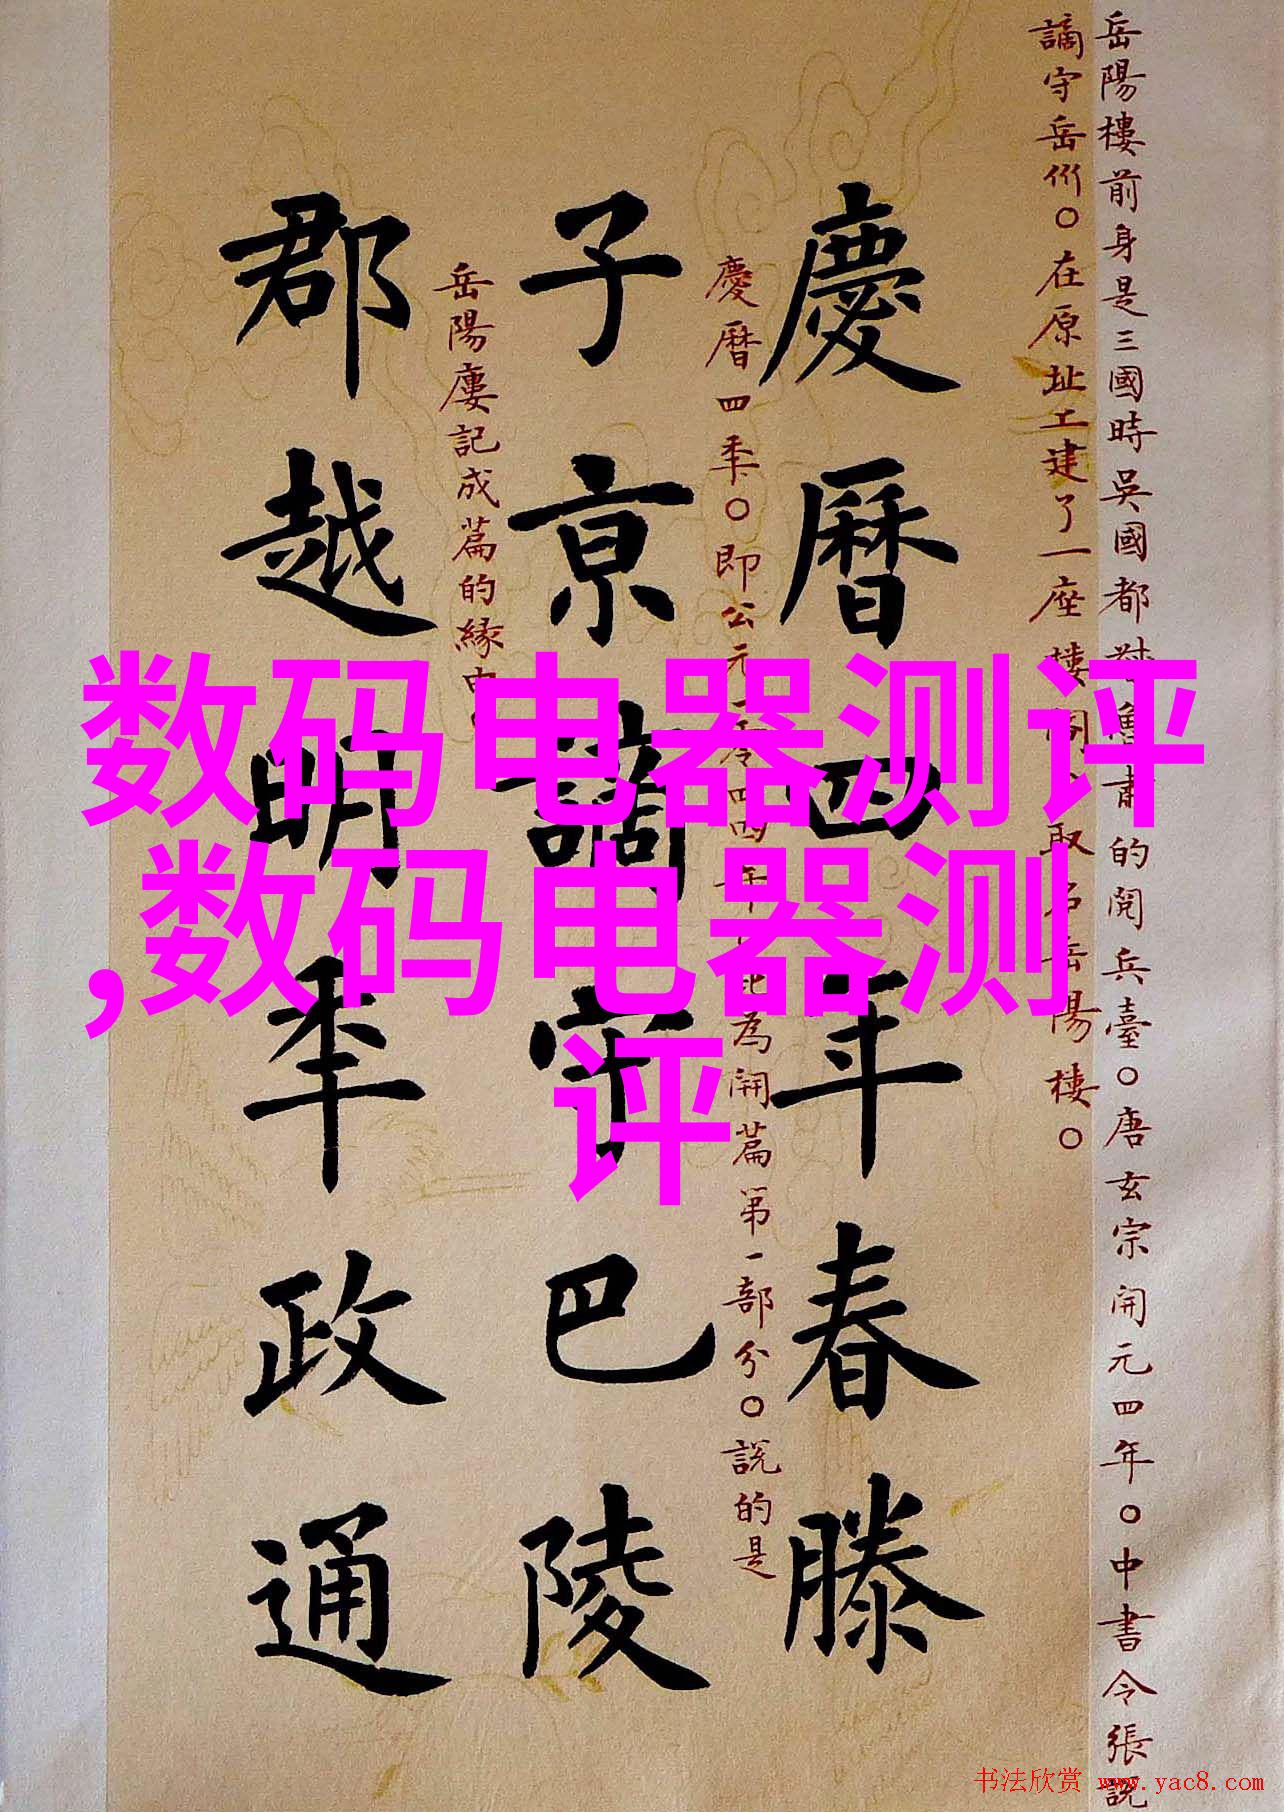 岳陽樓前身是三國時吳國都
的閱兵臺○唐玄宗開元四年○中書令張說
謫守岳州○在原址工建了一座樓
取名岳陽樓○
慶曆四年春滕
慶曆四秊○即公元
為開篇第一部分○說的是
子京謫守巴陵
岳陽廔記成篇的緣由
郡越明秊政通
数码电器测评
,数码电器测
评
书法欣赏 www.yac8.com